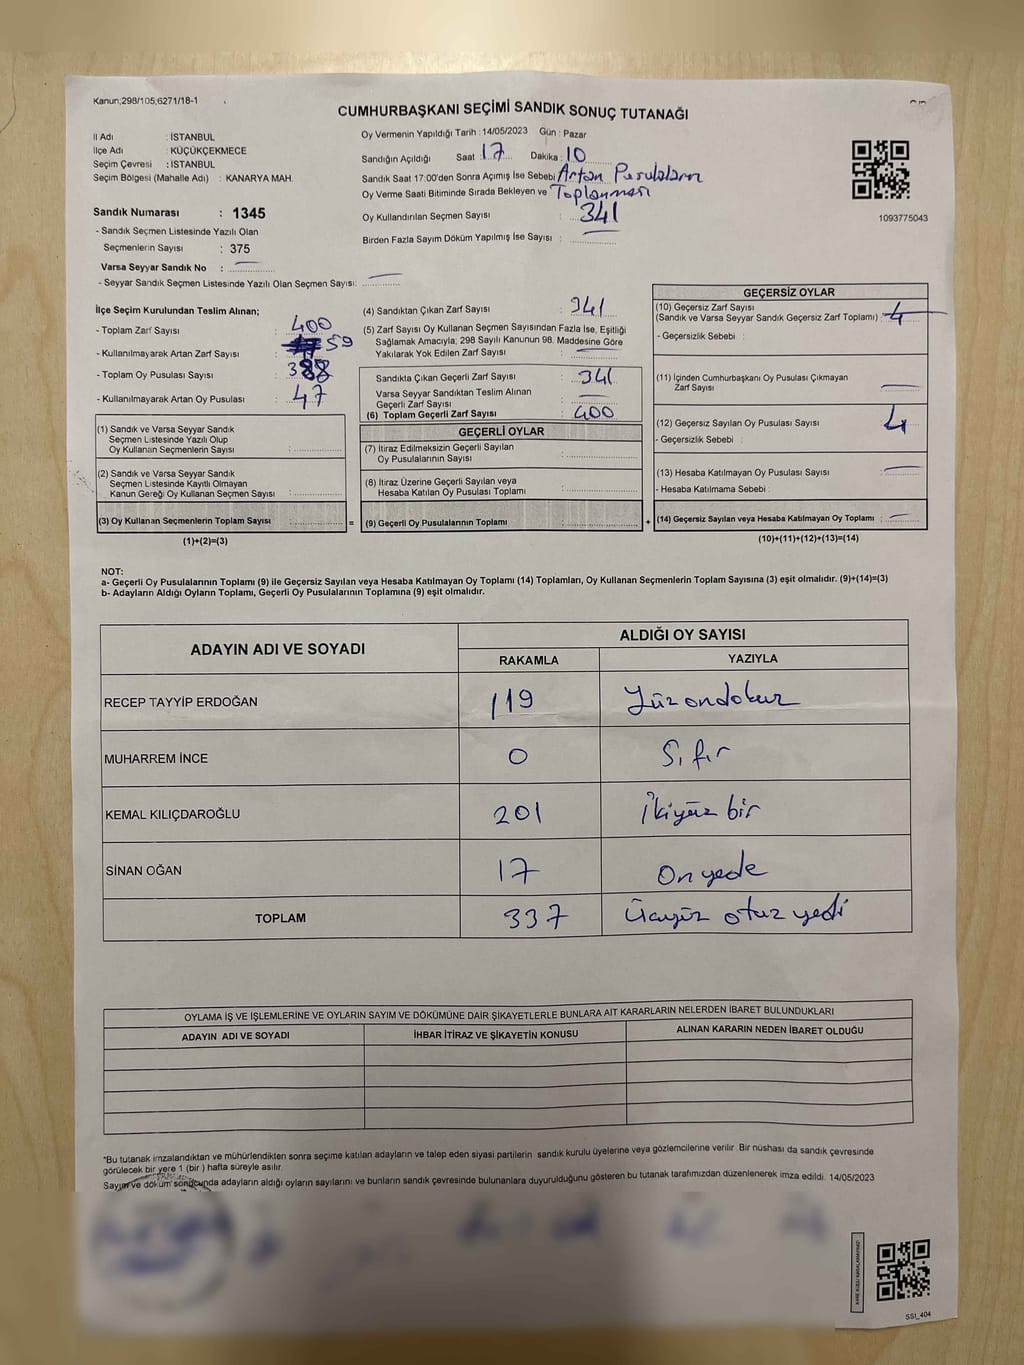 Kanun;298/105;6271/18-1
CUMHURBAŞKANI SEÇİMİ SANDIK SONUÇ TUTANAĞI
İl Adı : İSTANBUL
İlçe Adı : KÜÇÜKÇEKMECE
Seçim Çevresi : İSTANBUL
Seçim Bölgesi (Mahalle Adı) : KANARYA MAH.
Sandık Numarası : 1345
- Sandık Seçmen Listesinde Yazılı Olan
Seçmenlerin Sayısı : 375
Varsa Seyyar Sandık No :
- Seyyar Sandık Seçmen Listesinde Yazılı Olan Seçmen Sayısı:
Oy Vermenin Yapıldığı Tarih : 14/05/2023 Gün : Pazar
Sandığın Açıldığı Saat : 17 Dakika : 10
Sandık Saat 17:00'den Sonra Açılmış İse Sebebi Artan Pusulaların
Oy Verme Saati Bitiminde Sırada Bekleyen ve Toplanması
Oy Kullandırılan Seçmen Sayısı : 341
Birden Fazla Sayım Döküm Yapılmış İse Sayısı :
1093775043
İlçe Seçim Kurulundan Teslim Alınan;
- Toplam Zarf Sayısı : 400
- Kullanılmayarak Artan Zarf Sayısı : 59
- Toplam Oy Pusulası Sayısı : 388
- Kullanılmayarak Artan Oy Pusulası : 47
(1) Sandık ve Varsa Seyyar Sandık
Seçmen Listesinde Yazılı Olup
Oy Kullanan Seçmenlerin Sayısı :
(2) Sandık ve Varsa Seyyar Sandık
Seçmen Listesinde Kayıtlı Olmayan
Kanun Gereği Oy Kullanan Seçmen Sayısı :
(3) Oy Kullanan Seçmenlerin Toplam Sayısı : =
(1)+(2)=(3)
(4) Sandıktan Çıkan Zarf Sayısı : 341
(5) Zarf Sayısı Oy Kullanan Seçmen Sayısından Fazla İse, Eşitliği
Sağlamak Amacıyla; 298 Sayılı Kanunun 98. Maddesine Göre
Yakılarak Yok Edilen Zarf Sayısı :
Sandıkta Çıkan Geçerli Zarf Sayısı : 341
Varsa Seyyar Sandıktan Teslim Alınan
Geçerli Zarf Sayısı :
(6) Toplam Geçerli Zarf Sayısı : 400
GEÇERLİ OYLAR
(7) İtiraz Edilmeksizin Geçerli Sayılan
Oy Pusulalarının Sayısı :
(8) İtiraz Üzerine Geçerli Sayılan veya
Hesaba Katılan Oy Pusulası Toplamı :
(9) Geçerli Oy Pusulalarının Toplamı : +
GEÇERSİZ OYLAR
(10) Geçersiz Zarf Sayısı
(Sandık ve Varsa Seyyar Sandık Geçersiz Zarf Toplamı) : 4
- Geçersizlik Sebebi :
(11) İçinden Cumhurbaşkanı Oy Pusulası Çıkmayan
Zarf Sayısı :
(12) Geçersiz Sayılan Oy Pusulası Sayısı : 4
- Geçersizlik Sebebi :
(13) Hesaba Katılmayan Oy Pusulası Sayısı :
- Hesaba Katılmama Sebebi :
(14) Geçersiz Sayılan veya Hesaba Katılmayan Oy Toplamı :
(10)+(11)+(12)+(13)=(14)
NOT:
a- Geçerli Oy Pusulalarının Toplamı (9) ile Geçersiz Sayılan veya Hesaba Katılmayan Oy Toplamı (14) Toplamları, Oy Kullanan Seçmenlerin Toplam Sayısına (3) eşit olmalıdır. (9)+(14)=(3)
b- Adayların Aldığı Oyların Toplamı, Geçerli Oy Pusulalarının Toplamına (9) eşit olmalıdır.
ADAYIN ADI VE SOYADI ALDIĞI OY SAYISI
RAKAMLA YAZIYLA
RECEP TAYYİP ERDOĞAN 119 Yüzondokuz
MUHARREM İNCE 0 Sıfır
KEMAL KILIÇDAROĞLU 201 İkiyüz bir
SİNAN OĞAN 17 Onyede
TOPLAM 337 Üçyüz otuz yedi
OYLAMA İŞ VE İŞLEMLERİNE VE OYLARIN SAYIM VE DÖKÜMÜNE DAİR ŞİKAYETLERLE BUNLARA AİT KARARLARIN NELERDEN İBARET BULUNDUKLARI
ADAYIN ADI VE SOYADI İHBAR İTİRAZ VE ŞİKAYETİN KONUSU ALINAN KARARIN NEDEN İBARET OLDUĞU
*Bu tutanak imzalandıktan ve mühürlendikten sonra seçime katılan adayların ve talep eden siyasi partilerin sandık kurulu üyelerine veya gözlemcilerine verilir. Bir nüshası da sandık çevresinde
görülecek bir yere 1 (bir ) hafta süreyle asılır.
Sayım ve döküm sonucunda adayların aldığı oyların sayılarını ve bunların sandık çevresinde bulunanlara duyurulduğunu gösteren bu tutanak tarafımızdan düzenlenerek imza edildi. 14/05/2023
SSI_404